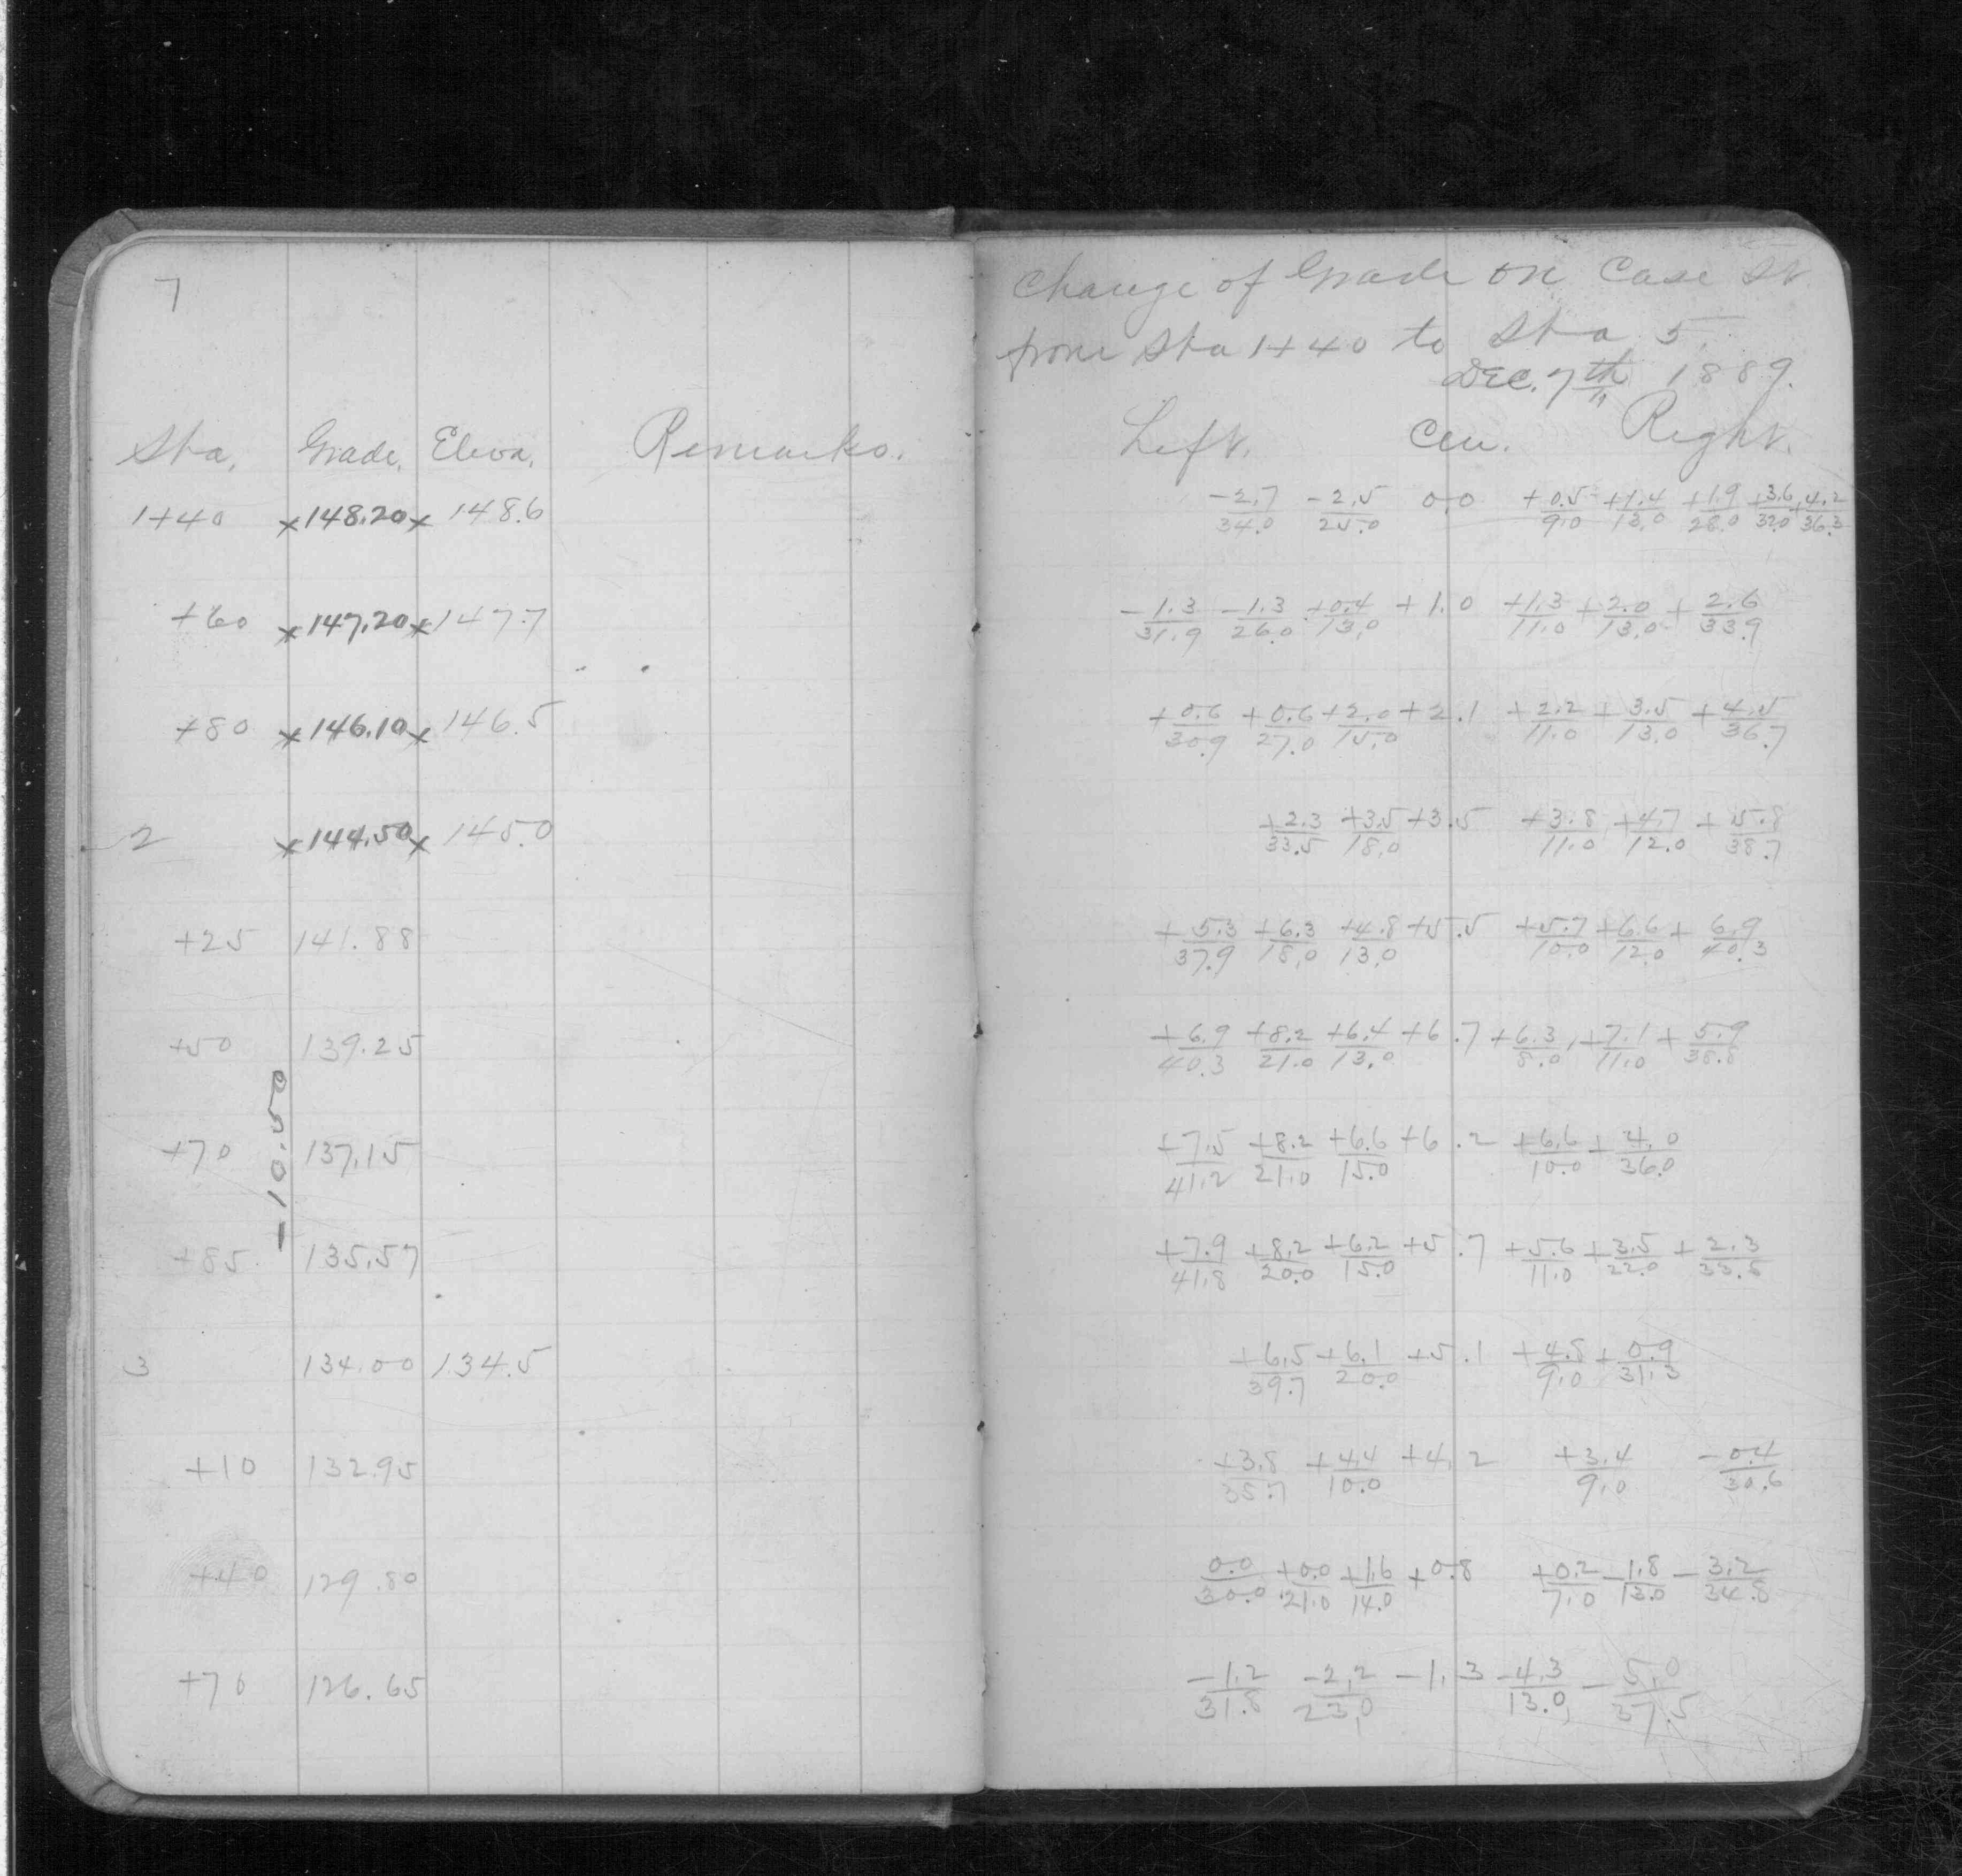 7
Sta. Grade. Eleva. Remarks.
1+40 x148.20x 148.6
+60 x147.20x 147.7
+80 x146.10x 146.5
2 x144.50x 145.0
+25 141.88
+50 139.25
-10.50
+70 137.15
+85 135.57
3 134.00 134.5
+10 132.95
+40 129.80
+70 126.65
Change of Grade on Case St.
from Sta 1+40 to Sta 5.
Dec. 7th 1889.
Left. Cen. Right.
-2.7/34.0 -2.5/25.0 0.0 +0.5/9.0 +1.4/13.0 +1.9/28.0 +3.6/32.0 +4.2/36.3
-1.3/31.9 -1.3/26.0 +0.4/13.0 +1.0 +1.3/11.0 +2.0/13.0 +2.6/33.9
+0.6/30.9 +0.6/27.0 +2.0/15.0 +2.1 +2.2/11.0 +3.5/13.0 +4.5/36.7
+2.3/33.5 +3.5/18.0 +3.5 +3.8/11.0 +4.7/12.0 +5.8/38.7
+5.3/37.9 +6.3/18.0 +4.8/13.0 +5.5 +5.7/10.0 +6.6/12.0 +6.9/40.3
+6.9/40.3 +8.2/21.0 +6.4/13.0 +6.7 +6.3/8.0 +7.1/11.0 +5.9/38.8
+7.5/41.2 +8.2/21.0 +6.6/15.0 +6.2 +6.6/10.0 +4.0/36.0
+7.9/41.8 +8.2/20.0 +6.2/15.0 +5.7 +5.6/11.0 +3.5/22.0 +2.3/33.5
+6.5/39.7 +6.1/20.0 +5.1 +4.8/9.0 +0.9/31.3
+3.8/35.7 +4.4/10.0 +4.2 +3.4/9.0 -0.4/30.6
0.0/30.0 +0.0/21.0 +1.6/14.0 +0.8 +0.2/7.0 -1.8/13.0 -3.2/34.8
-1.2/31.8 -2.2/23.0 -1.3 -4.3/13.0 -5.0/37.5